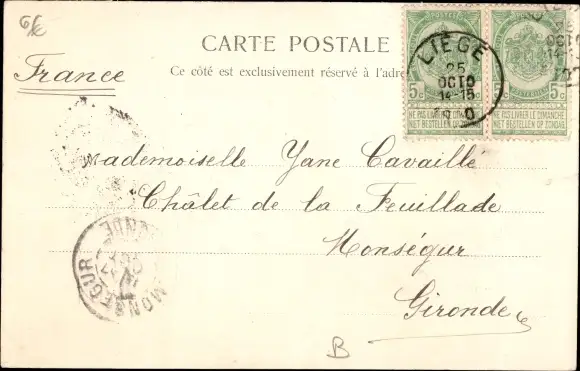 6€
CARTE POSTALE
Ce côté est exclusivement réservé à l'adre
France
5c 5c
NE PAS LIVRER LE DIMANCHE NE PAS LIVRER LE DIMANCHE
NIET BESTELLEN OP ZONDAG NIET BESTELLEN OP ZONDAG
LIÈGE
25
OCTO
14-15
OCTO
14-15
Mademoiselle Yane Cavaillé
Châlet de la Feuillade
Monségur
Gironde
MONSEGUR
B